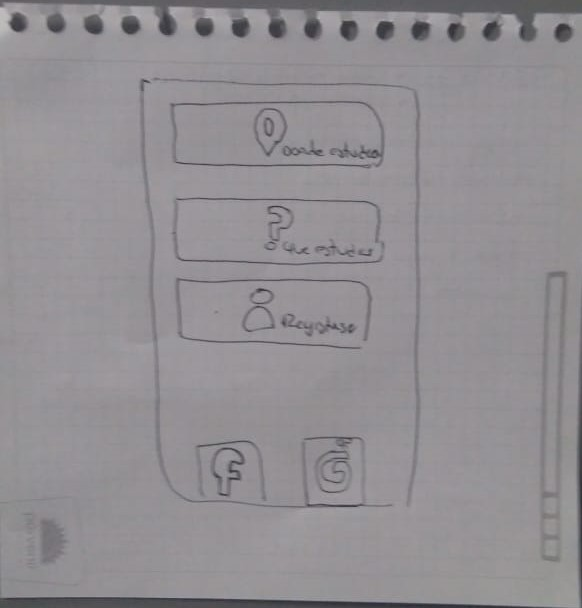 Donde estudiar
Que estudiar
Registrase
f
G+